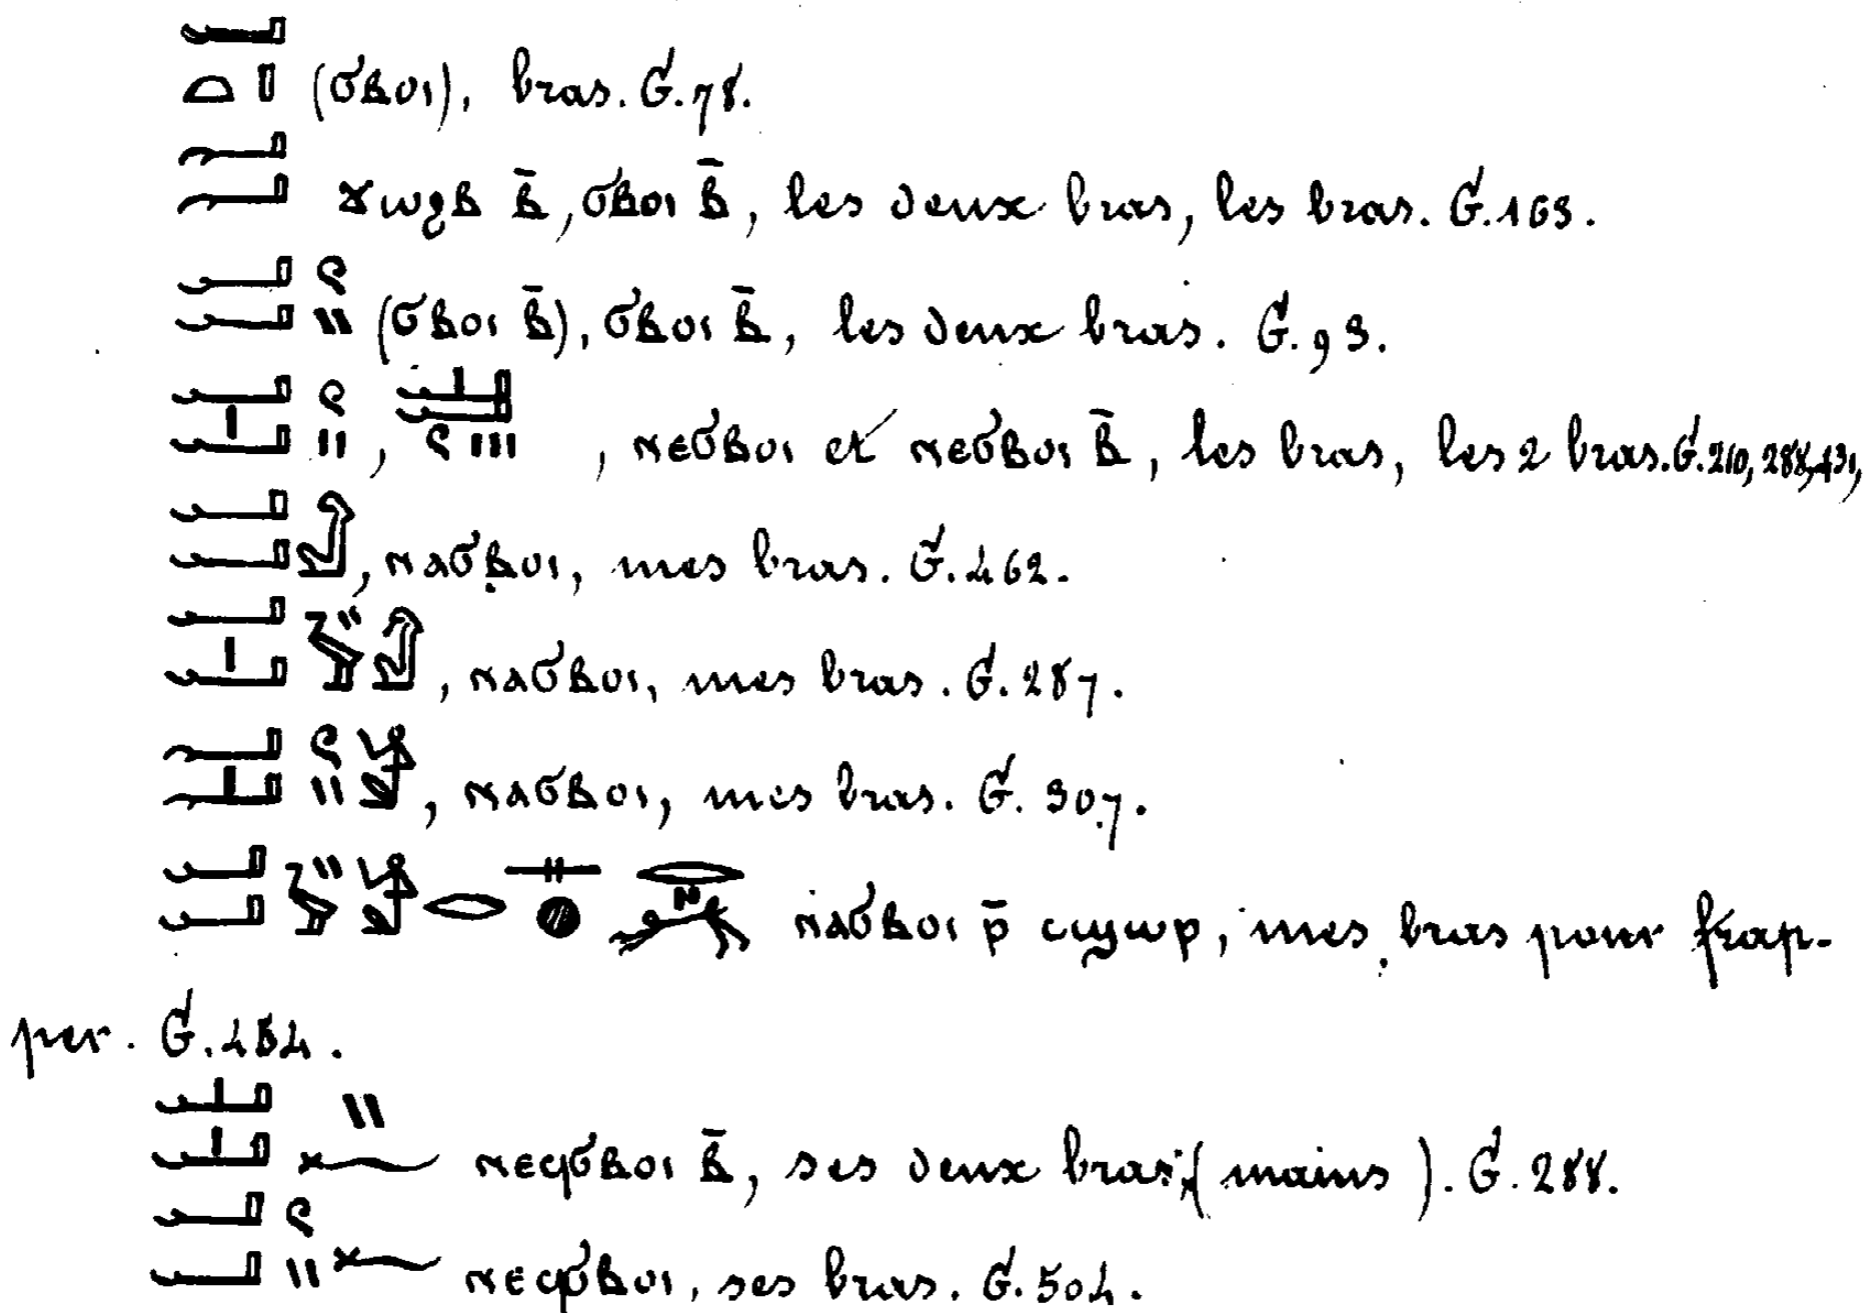 𓂝𓏏𓏤 (ϭⲃⲟⲓ), bras. G. 78.
𓂝𓂝 ϫⲱϩⲃ ⲃ̄, ϭⲃⲟⲓ ⲃ̄, les deux bras, les bras. G. 163.
𓂝𓂝𓏲𓏭 (ϭⲃⲟⲓ ⲃ̄), ϭⲃⲟⲓ ⲃ̄, les deux bras. G. 93.
𓂝𓏤𓂝𓏲𓏭, 𓂝𓏤𓂝𓏲𓏥, ⲛⲉϭⲃⲟⲓ et ⲛⲉϭⲃⲟⲓ ⲃ̄, les bras, les 2 bras. G. 210, 288, 431,
𓂝𓂝, ⲛⲁϭⲃⲟⲓ, mes bras. G. 462.
𓂝𓏤𓂝𓅱𓏭, ⲛⲁϭⲃⲟⲓ, mes bras. G. 287.
𓂝𓂝𓏤𓏲𓏭, ⲛⲁϭⲃⲟⲓ, mes bras. G. 307.
𓂝𓂝𓅱𓏭𓂋𓋴𓐍𓂋 ⲛⲁϭⲃⲟⲓ ⲣ̄ ⲥϣⲱⲣ, mes bras pour frap-
per. G. 454.
𓂝𓏤𓂝𓏤𓏭𓆑 ⲛⲉϥϭⲃⲟⲓ ⲃ̄, ses deux bras (mains). G. 288.
𓂝𓂝𓏲𓏭𓆑 ⲛⲉϥϭⲃⲟⲓ, ses bras. G. 504.